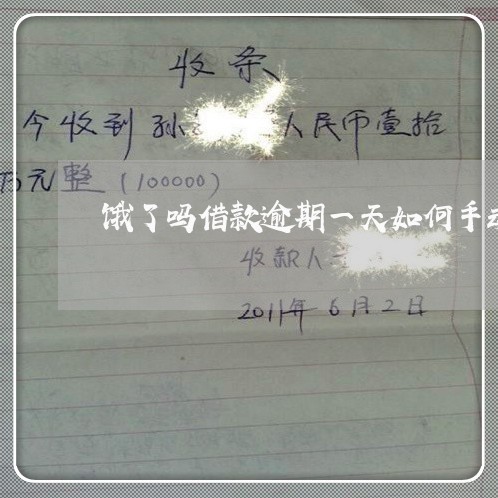 收条
今收到孙 人民币壹拾
万元整(100000)
饿了吗借款逾期一天如何手
收款人
2011年6月2日